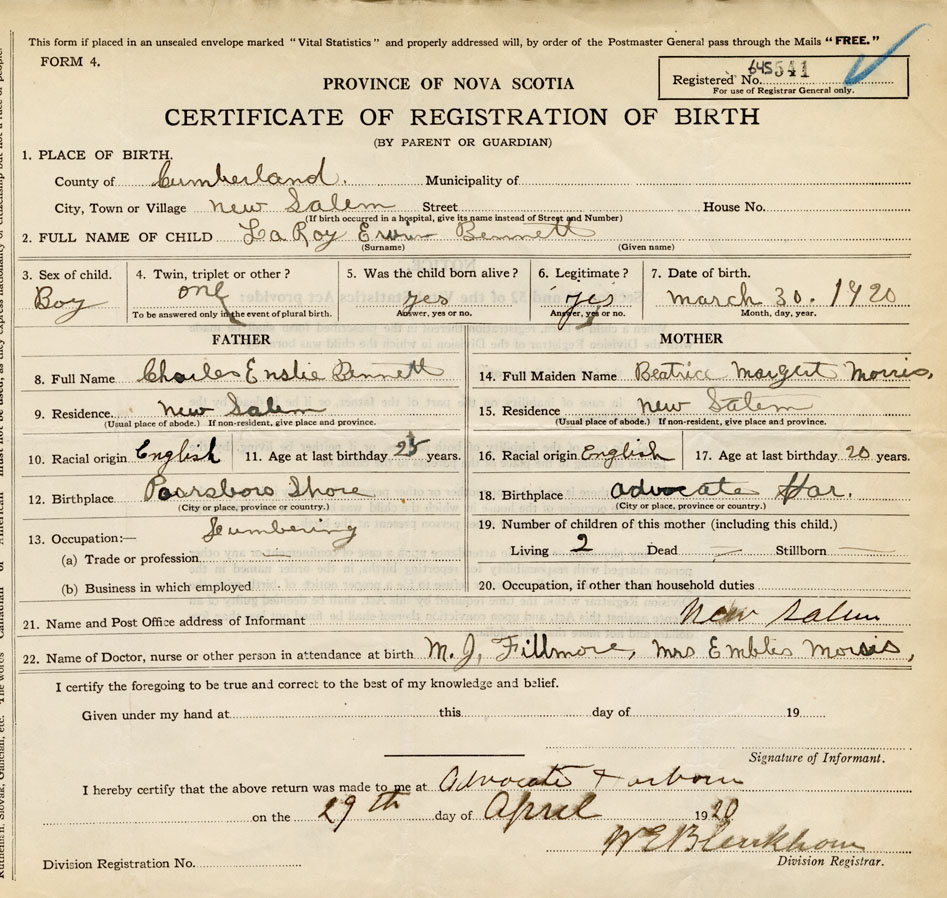 This form if placed in an unsealed envelope marked "Vital Statistics" and properly addressed will, by order of the Postmaster General pass through the Mails "FREE."
FORM 4.
645541
Registered No.
For use of Registrar General only.
PROVINCE OF NOVA SCOTIA
CERTIFICATE OF REGISTRATION OF BIRTH
(BY PARENT OR GUARDIAN)
1. PLACE OF BIRTH.
County of Cumberland. Municipality of
City, Town or Village New Salem Street House No.
(If birth occurred in a hospital, give its name instead of Street and Number)
2. FULL NAME OF CHILD LaRoy Erwin Bennett
(Surname) (Given name)
3. Sex of child. 4. Twin, triplet or other? 5. Was the child born alive? 6. Legitimate? 7. Date of birth.
Boy one yes yes March 30. 1920
To be answered only in the event of plural birth. Answer, yes or no. Answer, yes or no. Month, day, year.
FATHER MOTHER
8. Full Name Charles Enslie Bennett 14. Full Maiden Name Beatrice Margert Morris,
9. Residence. New Salem 15. Residence New Salem
(Usual place of abode.) If non-resident, give place and province. (Usual place of abode.) If non-resident, give place and province.
10. Racial origin English 11. Age at last birthday 25 years. 16. Racial origin English 17. Age at last birthday 20 years.
12. Birthplace Paarsboro Shore 18. Birthplace Advocate Har.
(City or place, province or country.) (City or place, province or country.)
13. Occupation:— Lumbering 19. Number of children of this mother (including this child.)
(a) Trade or profession Living 2 Dead — Stillborn —
(b) Business in which employed 20. Occupation, if other than household duties
21. Name and Post Office address of Informant New Salem
22. Name of Doctor, nurse or other person in attendance at birth M. J. Fillmore, Mrs Embles Morris,
I certify the foregoing to be true and correct to the best of my knowledge and belief.
Given under my hand at this day of 19
Signature of Informant.
I hereby certify that the above return was made to me at Advocate Harbour
on the 29th day of April 1920
W E Blenkhorn
Division Registration No. Division Registrar.